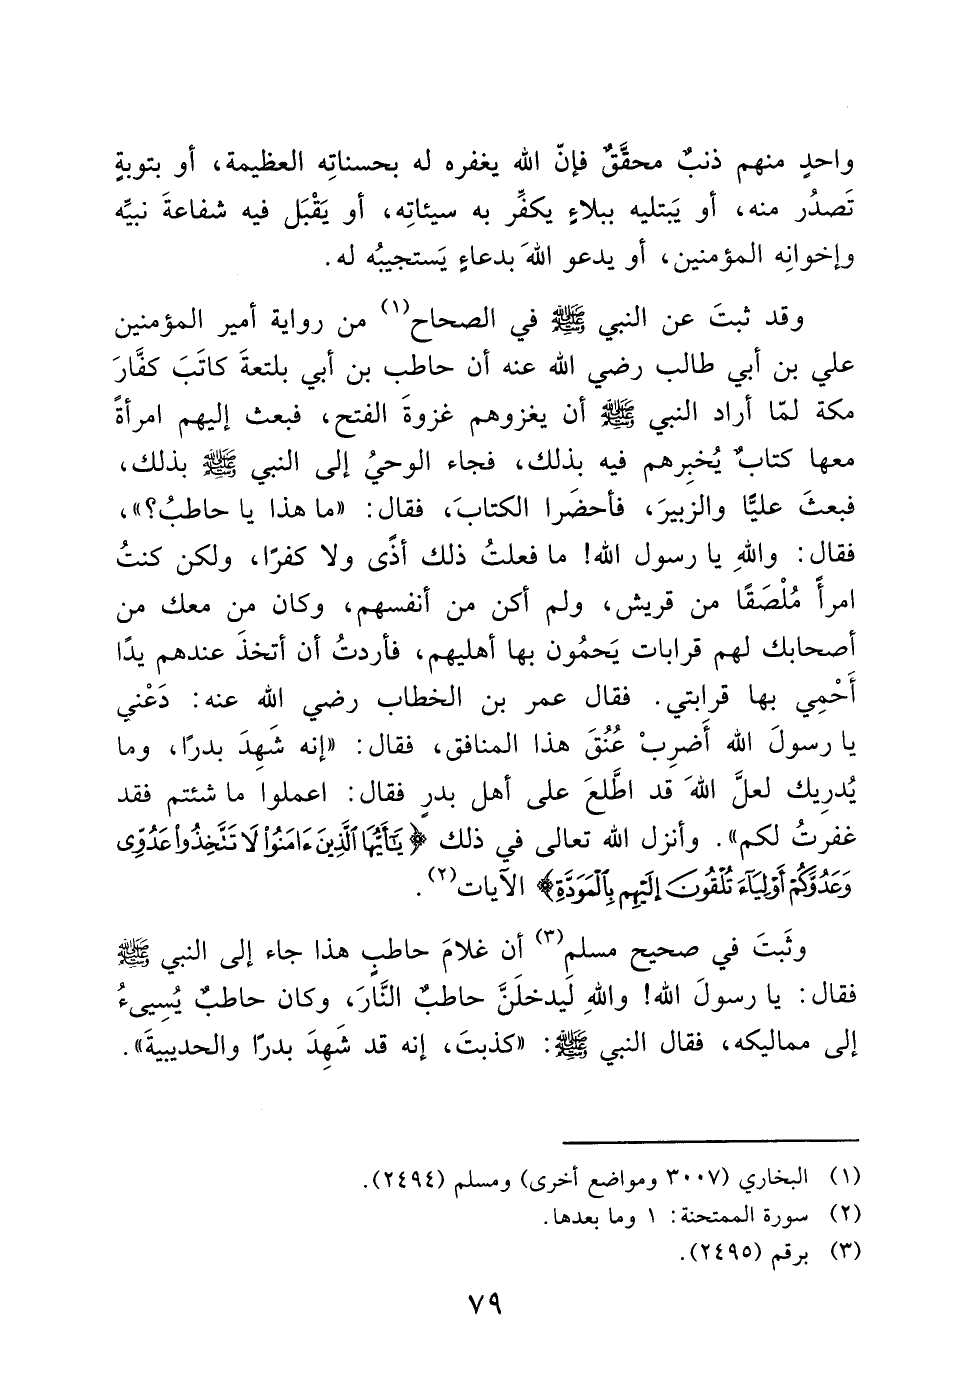 واحدٍ منهم ذنبٌ محقَّقٌ فإنّ الله يغفره له بحسناتِه العظيمة، أو بتوبةٍ
تَصدُر منه، أو يَبتليه ببلاءٍ يكفِّر به سيئاتِه، أو يَقْبَل فيه شفاعةَ نبيِّه
وإخوانِه المؤمنين، أو يدعو اللهَ بدعاءٍ يَستجيبُه له.
وقد ثبتَ عن النبي ﷺ في الصحاح(١) من رواية أمير المؤمنين
علي بن أبي طالب رضي الله عنه أن حاطب بن أبي بلتعةَ كاتَبَ كفَّارَ
مكة لمّا أراد النبي ﷺ أن يغزوهم غزوةَ الفتح، فبعث إليهم امرأةً
معها كتابٌ يُخبِرهم فيه بذلك، فجاء الوحيُ إلى النبي ﷺ بذلك،
فبعثَ عليًّا والزبيرَ، فأحضَرا الكتابَ، فقال: «ما هذا يا حاطبُ؟»،
فقال: واللهِ يا رسول الله! ما فعلتُ ذلك أذًى ولا كفرًا، ولكن كنتُ
امرأً مُلْصَقًا من قريش، ولم أكن من أنفسهم، وكان من معك من
أصحابك لهم قرابات يَحمُون بها أهليهم، فأردتُ أن أتخذَ عندهم يدًا
أَحْمِي بها قرابتي. فقال عمر بن الخطاب رضي الله عنه: دَعْني
يا رسولَ الله أَضرِبْ عُنُقَ هذا المنافق، فقال: «إنه شَهِدَ بدرًا، وما
يُدرِيك لعلَّ اللهَ قد اطَّلعَ على أهل بدرٍ فقال: اعملوا ما شئتم فقد
غفرتُ لكم». وأنزل الله تعالى في ذلك ﴿يَٰٓأَيُّهَا ٱلَّذِينَ ءَامَنُوا۟ لَا تَتَّخِذُوا۟ عَدُوِّى
وَعَدُوَّكُمْ أَوْلِيَآءَ تُلْقُونَ إِلَيْهِم بِٱلْمَوَدَّةِ﴾ الآيات(٢).
وثَبتَ في صحيح مسلم(٣) أن غلامَ حاطبٍ هذا جاء إلى النبي ﷺ
فقال: يا رسولَ الله! واللهِ لَيدخلَنَّ حاطبٌ النَّارَ، وكان حاطبٌ يُسِيىءُ
إلى مماليكه، فقال النبي ﷺ: «كذبتَ، إنه قد شَهِدَ بدرًا والحديبيةَ».
(١) البخاري (٣٠٠٧ ومواضع أخرى) ومسلم (٢٤٩٤).
(٢) سورة الممتحنة: ١ وما بعدها.
(٣) برقم (٢٤٩٥).
٧٩